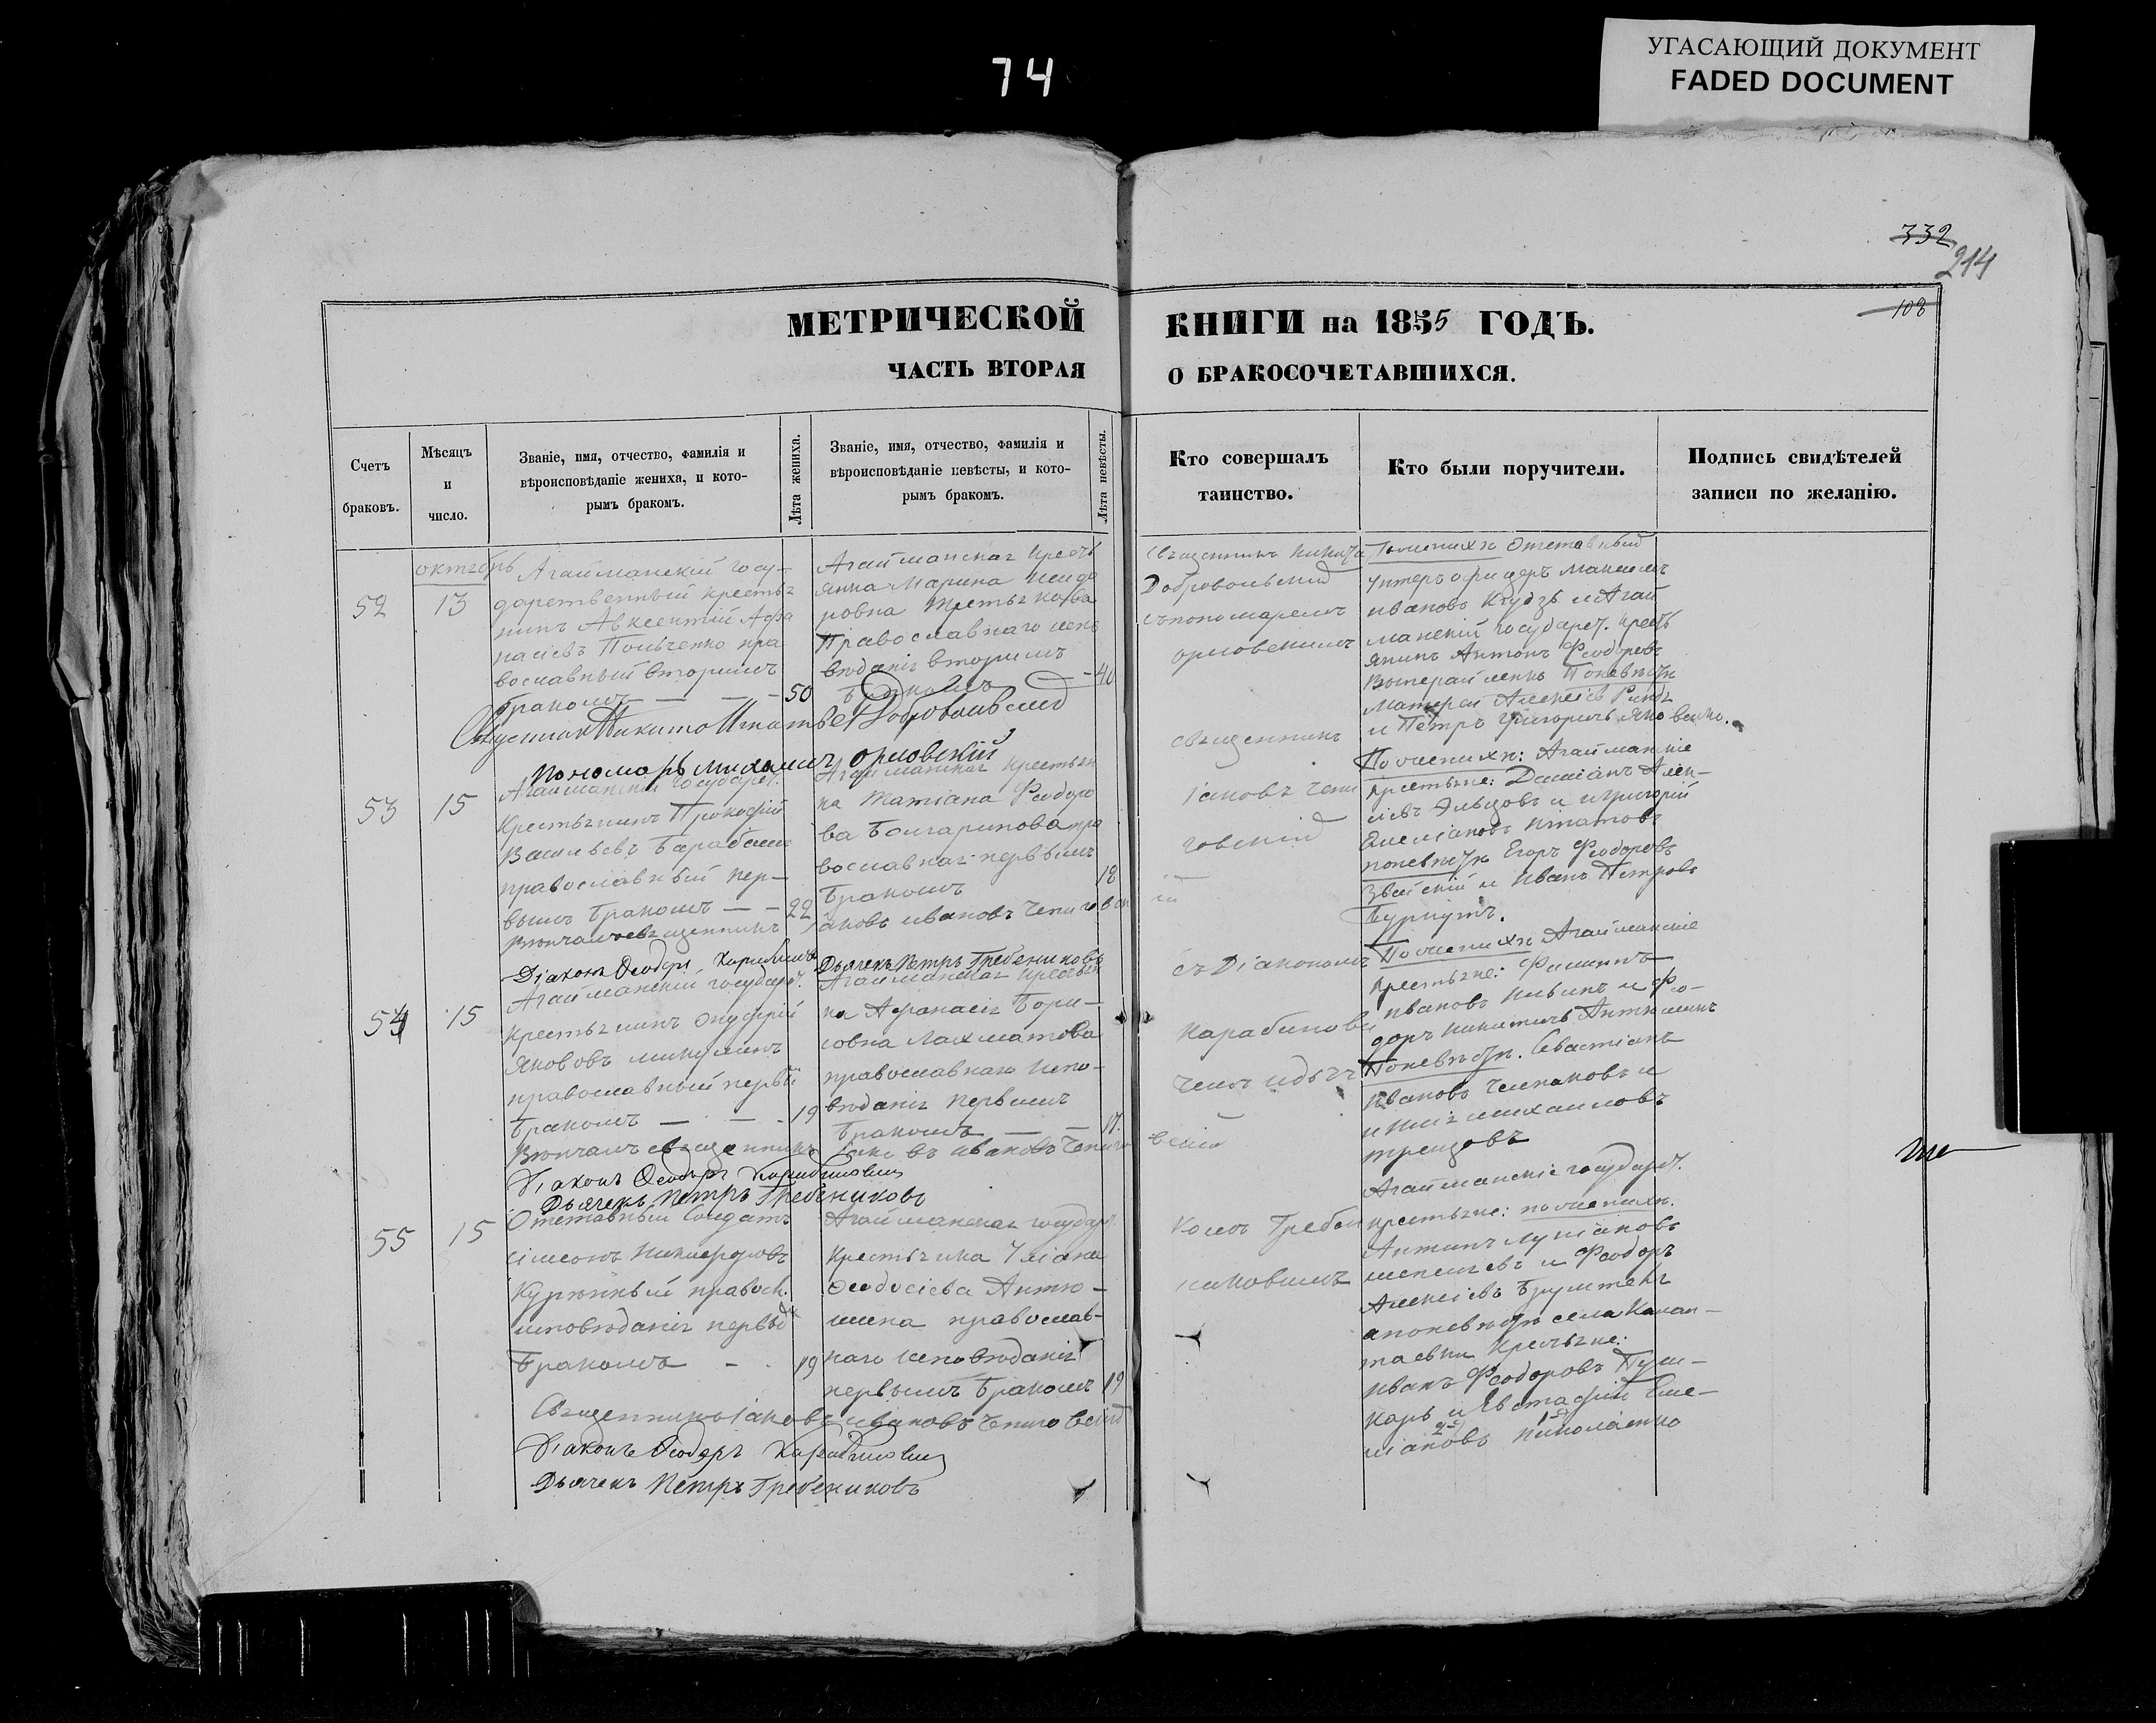 74
УГАСАЮЩИЙ ДОКУМЕНТ
FADED DOCUMENT
332
214
108
МЕТРИЧЕСКОЙ КНИГИ на 1855 ГОДЪ.
ЧАСТЬ ВТОРАЯ О БРАКОСОЧЕТАВШИХСЯ.
Счетъ
браковъ.
Мѣсяцъ
и
число.
Званіе, имя, отчество, фамилія и
вѣроисповѣданіе жениха, и кото-
рымъ бракомъ.
Лѣта жениха.
Званіе, имя, отчество, фамилія и
вѣроисповѣданіе невѣсты, и кото-
рымъ бракомъ.
Лѣта невѣсты.
Кто совершалъ
таинство.
Кто были поручители.
Подпись свидѣтелей
записи по желанію.
октябрь
52
13
Агайманскій госу-
дарственный крестья
нинъ Авксентій Афа
насіевъ Польченко пра
вославный вторымъ
бракомъ
50
Агайманская кресть
янка Марина Исидо
ровна Третьякова
Православнаго испо
вѣданія вторымъ
бракомъ
40
Священникъ Никита
Добровольскій
съ пономаремъ
орловскимъ
По женихѣ Отставный
унтеръ офицеръ Максимъ
Ивановъ и Агай
манскій государст. кресть
янинъ Антонъ Феодоровъ
По невѣстѣ
Алексіевъ
и Петръ Григорьевъ
Священникъ Никита Игнатьевъ Добровольскій
Пономарь Михаилъ орловскій
53
15
Агайманскій государст.
Крестьянинъ Прокофій
Васильевъ Барабаш
православный пер-
вымъ бракомъ
22
Агайманская крестьян
ка Татіана Феодоро
ва Болгаринова пра
вославная первымъ
бракомъ
18
священникъ
Іаковъ Чепи
говскій
По женихѣ: Агайманскіе
крестьяне: Даміанъ Алек-
сіевъ Эльцовъ и Григорій
Емеліановъ Игнатовъ
по невѣстѣ Егоръ Феодоровъ
и Иванъ Петровъ
Вѣнчалъ священникъ Іаковъ Ивановъ Чепигов
Діаконъ Феодоръ
Дьячекъ Петръ Гребениковъ
54
15
Агайманскій государст.
Крестьянинъ Онуфрій
Яковъ
православный первы
бракомъ
19
Агайманская крестьян
ка Афанасія Бори-
совна Лахматова
православнаго испо-
вѣданія первымъ
бракомъ
17.
съ Діакономъ
Карабинови
По женихѣ Агайманскіе
крестьяне: Филиппъ
Ивановъ и Фео-
доръ Никитинъ Антюшинъ
По невѣстѣ. Севастіанъ
Ивановъ и
Михаиловъ
Вѣнчалъ священникъ Іаковъ Ивановъ Чепиго вскій
Діаконъ Феодоръ
Дьячекъ Петръ Гребениковъ
55
15
Отставный Солдатъ
Сімеонъ Никифоровъ
Курючный правосл.
исповѣданія первы
бракомъ
19
Агайманская государст.
Крестьянка Уліана
Феодосіева Антю-
шина православ-
наго исповѣданія
первымъ бракомъ
19
Агайманскіе государст.
крестьяне: по женихѣ.
и Феодоръ
Алексіевъ
а по невѣстѣ села
крестьяне:
Иванъ Феодоровъ Пуш-
карь и Евстафій Еме-
ліановъ Николаенко
Священникъ Іаковъ Ивановъ Чепиговскій
Діаконъ Феодоръ
Дьячекъ Петръ Гребениковъ